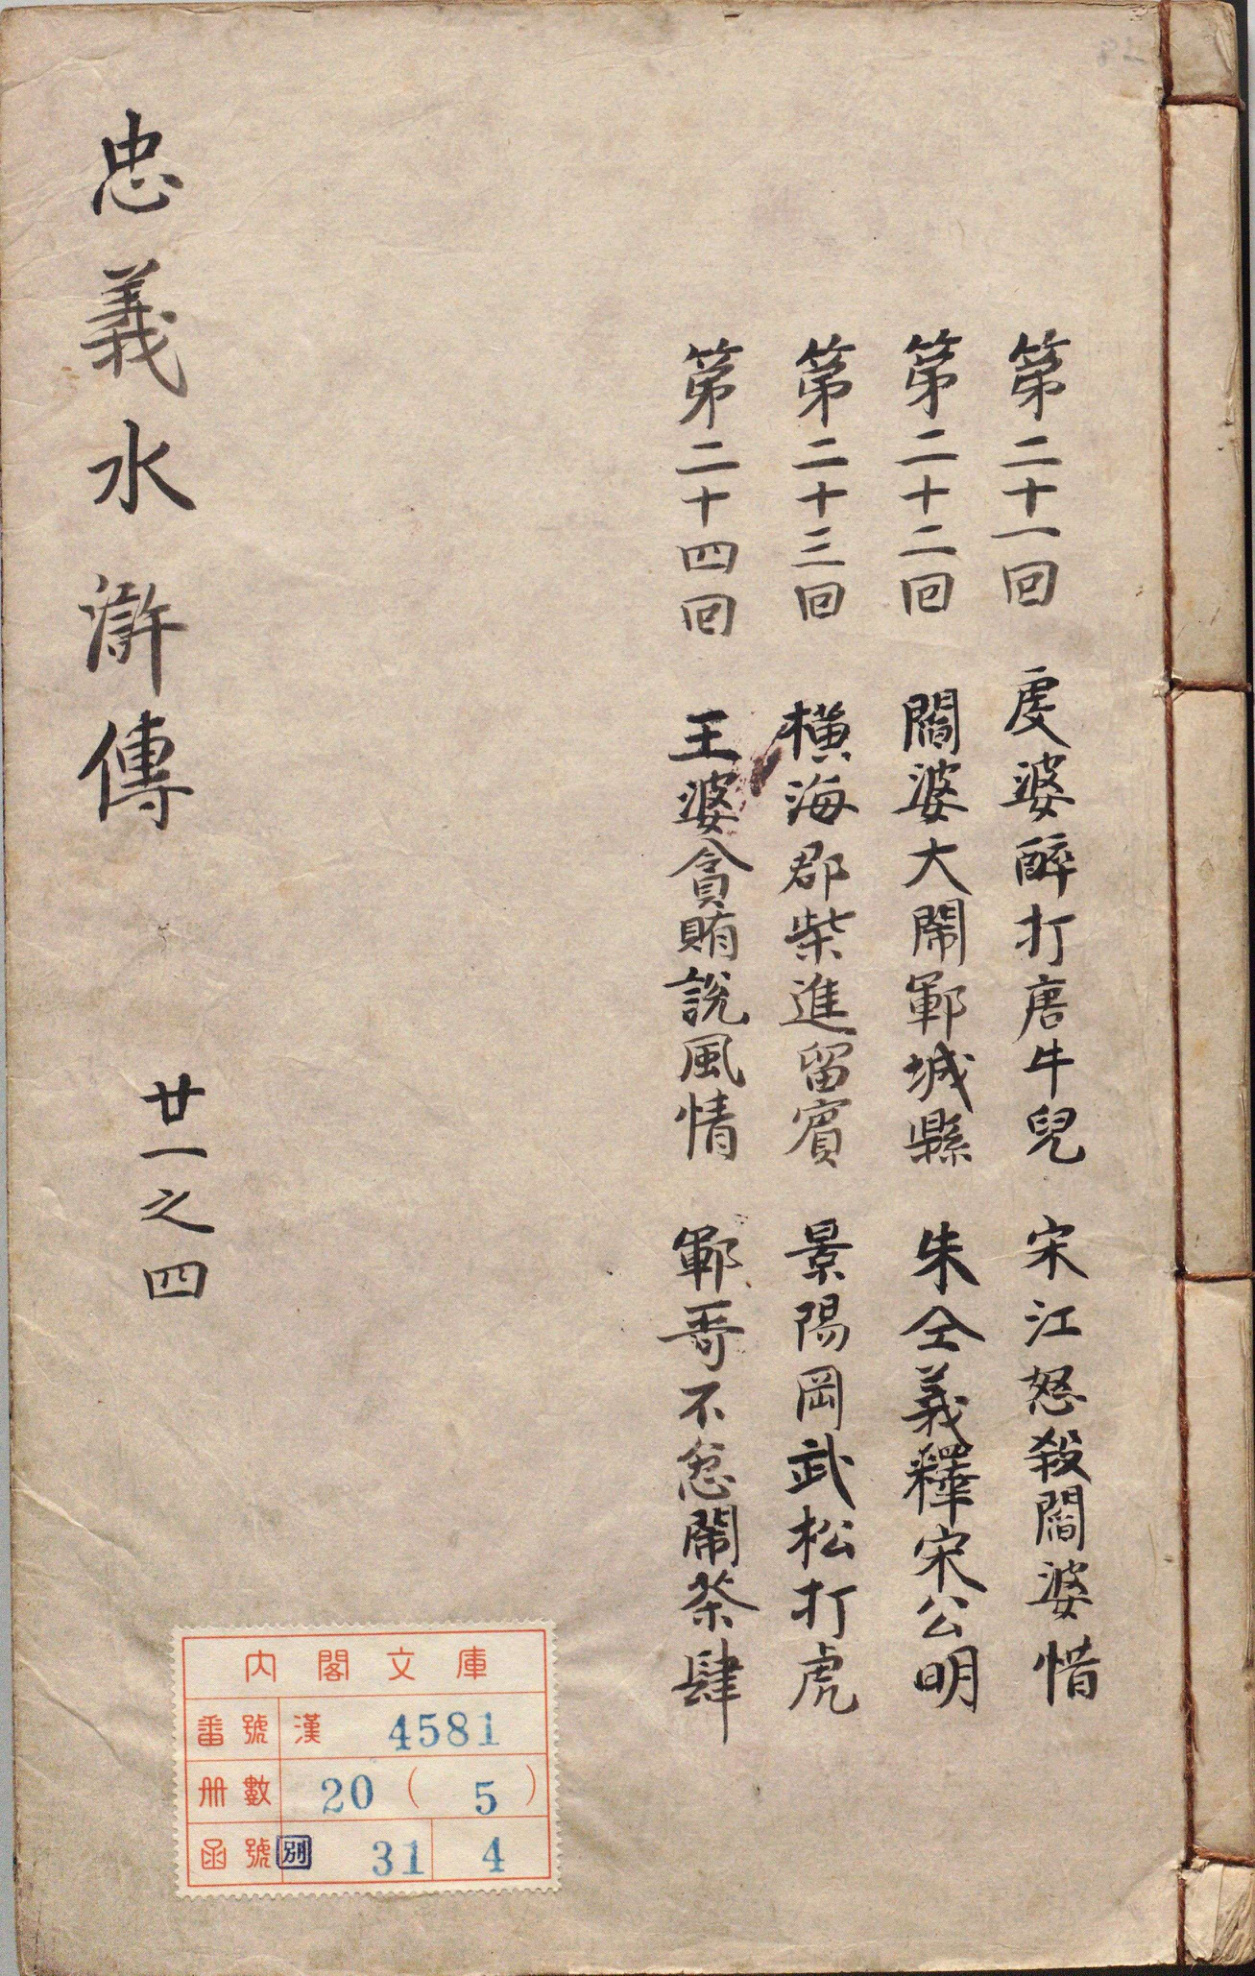 第二十一回 虔婆醉打唐牛兒 宋江怒殺閻婆惜
第二十二回 閻婆大鬧鄆城縣 朱仝義釋宋公明
第二十三回 橫海郡柴進留賓 景陽岡武松打虎
第二十四回 王婆貪賄說風情 鄆哥不忿鬧茶肆
忠義水滸傳 廿一之四
內閣文庫
番號 漢 4581
冊數 20 ( 5 )
函號 別 31 4